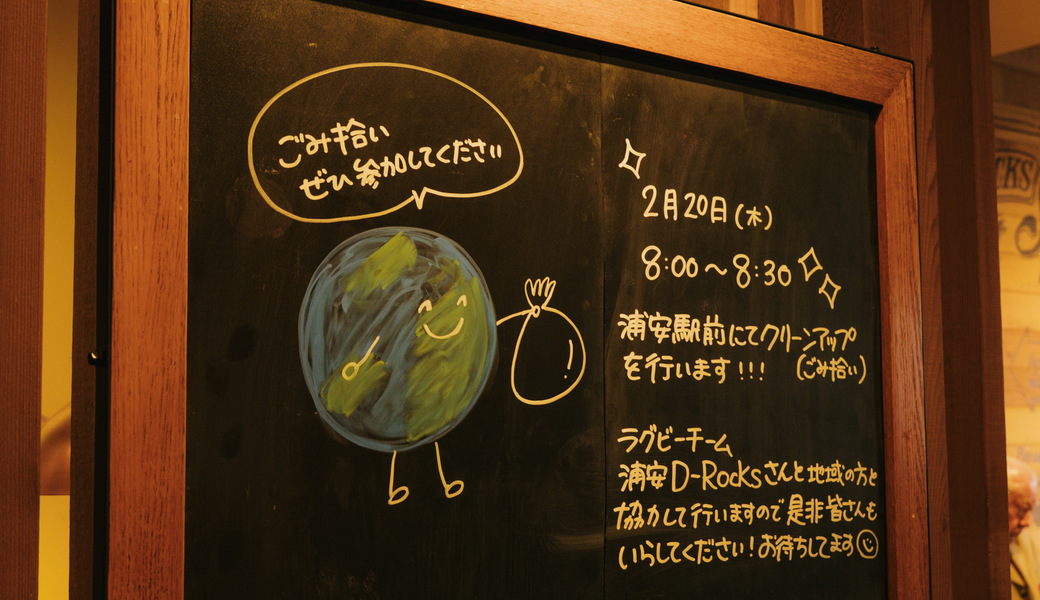 ごみ拾い
ぜひ参加してください
2月20日(木)
8:00～8:30
浦安駅前にてクリーンアップ
を行います!!! (ごみ拾い)
ラグビーチーム
浦安D-Rocksさんと地域の方と
協力して行いますので是非皆さんも
いらしてください!お待ちしてます
CKS